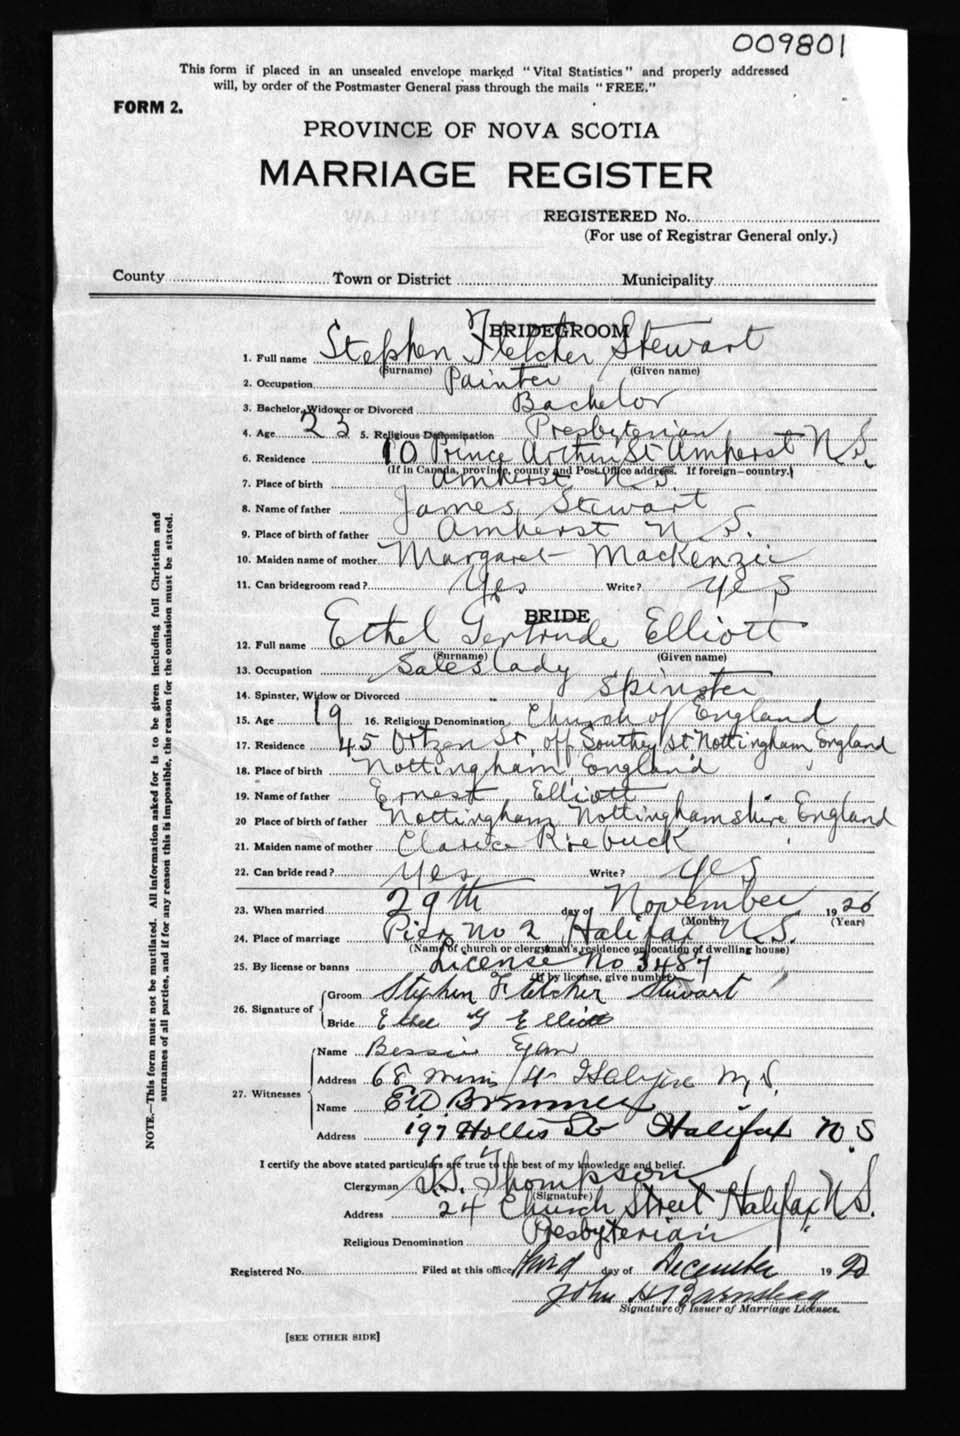 009801
This form if placed in an unsealed envelope marked "Vital Statistics" and properly addressed
will, by order of the Postmaster General pass through the mails "FREE."
FORM 2.
PROVINCE OF NOVA SCOTIA
MARRIAGE REGISTER
REGISTERED No.
(For use of Registrar General only.)
County Town or District Municipality
BRIDEGROOM
1. Full name Stephen Fletcher Stewart
(Surname) (Given name)
2. Occupation Painter
3. Bachelor, Widower or Divorced Bachelor
4. Age 23 5. Religious Denomination Presbyterian
6. Residence 10 Prince Arthur St Amherst N.S.
(If in Canada, province, county and Post Office address. If foreign—country.)
7. Place of birth Amherst N.S.
8. Name of father James Stewart
9. Place of birth of father Amherst N.S.
10. Maiden name of mother Margaret MacKenzie
11. Can bridegroom read? Yes Write? Yes
BRIDE
12. Full name Ethel Gertrude Elliott
(Surname) (Given name)
13. Occupation Saleslady
14. Spinster, Widow or Divorced Spinster
15. Age 19 16. Religious Denomination Church of England
17. Residence 45 Ortzen St, off Southey St Nottingham England
18. Place of birth Nottingham England
19. Name of father Ernest Elliott
20 Place of birth of father Nottingham Nottinghamshire England
21. Maiden name of mother Clarice Roebuck
22. Can bride read? Yes Write? Yes
23. When married 29th day of November 1920
(Month) (Year)
24. Place of marriage Pier No 2 Halifax N.S.
(Name of church or clergyman's residence or location of dwelling house)
25. By license or banns License No 3487
(If by license, give number)
26. Signature of Groom Stephen Fletcher Stewart
Bride Ethel G Elliott
27. Witnesses
Name Bessie Egan
Address 68 Halifax N.S.
Name E.A.
Address 197 Hollis St Halifax N.S
I certify the above stated particulars are true to the best of my knowledge and belief.
Clergyman Thompson
(Signature)
Address 24 Church Street Halifax N.S.
Religious Denomination Presbyterian
Registered No. Filed at this office third day of December 1920
John H Barnstead
Signature of Issuer of Marriage Licenses.
[SEE OTHER SIDE]
NOTE.—This form must not be mutilated. All information asked for is to be given including full Christian and
surnames of all parties, and if for any reason this is impossible, the reason for the omission must be stated.